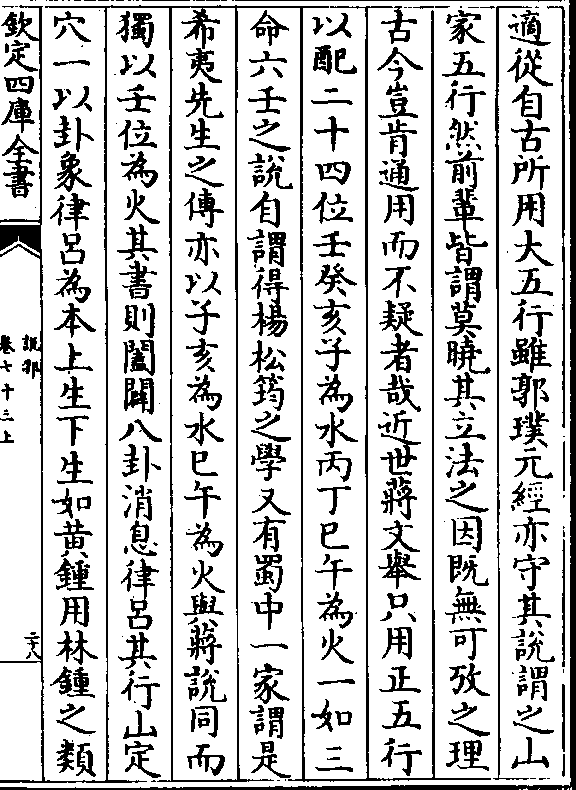 適從自古所用大五行雖郭璞元經亦守其說謂之山
家五行然前輩皆謂莫曉其立法之因既無可攷之理
古今豈肯通用而不疑者哉近世蔣文舉只用正五行
以配二十四位壬癸亥子為水丙丁巳午為火一如三
命六壬之說自謂得楊松筠之學又有蜀中一家謂是
希夷先生之傳亦以子亥為水巳午為火與蔣說同而
獨以壬位為火其書則闔闢八卦消息律呂其行山定
穴一以卦象律呂為本上生下生如黃鍾用林鍾之類
欽定四庫全書
說郛
卷七十三上
二十八